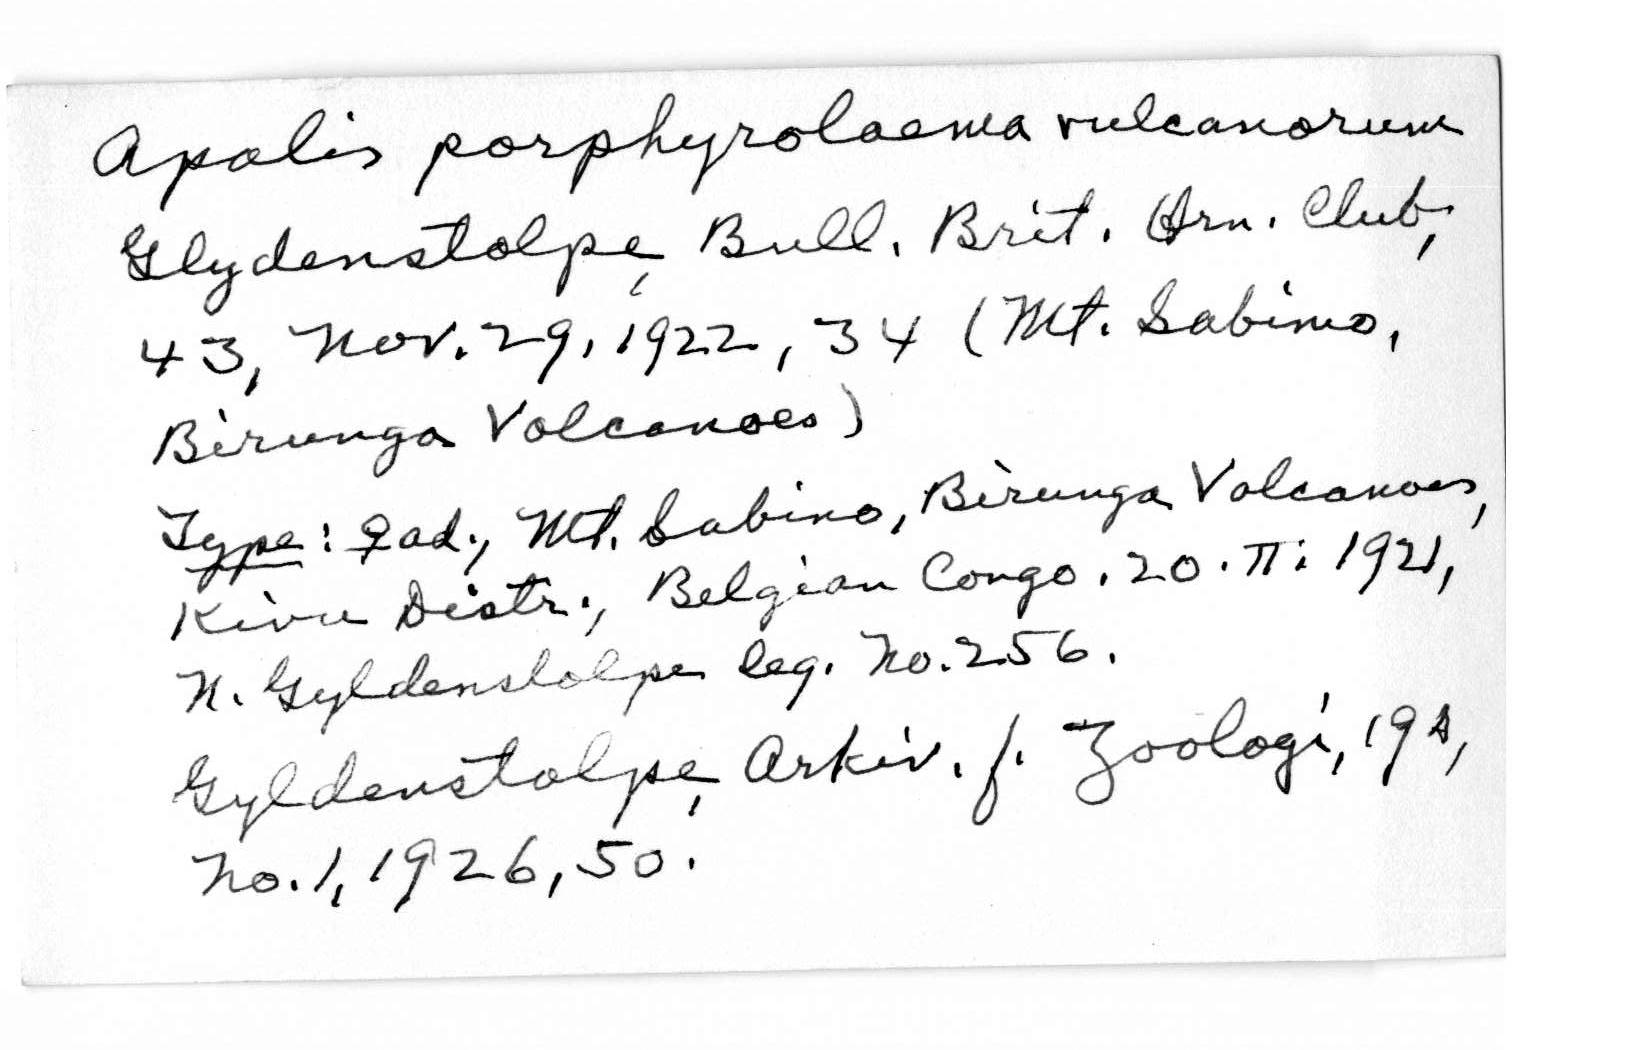 Apalis porphyrolaema vulcanorum
Glydenstolpe, Bull. Brit. Orn. Club,
43, Nov. 29, 1922, 34 (Mt. Sabino,
Birunga Volcanoes)
Type: ♀ ad., Mt. Sabino, Birunga Volcanoes,
Kivu Distr., Belgian Congo. 20. II. 1921,
N. Gyldenstolpe leg. No. 256.
Gyldenstolpe, Arkiv. f. Zoologi, 19A,
No. 1, 1926, 50.